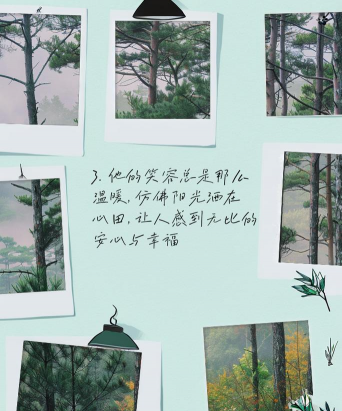 3. 他的笑容总是那么
温暖，仿佛阳光洒在
心田，让人感到无比的
安心与幸福